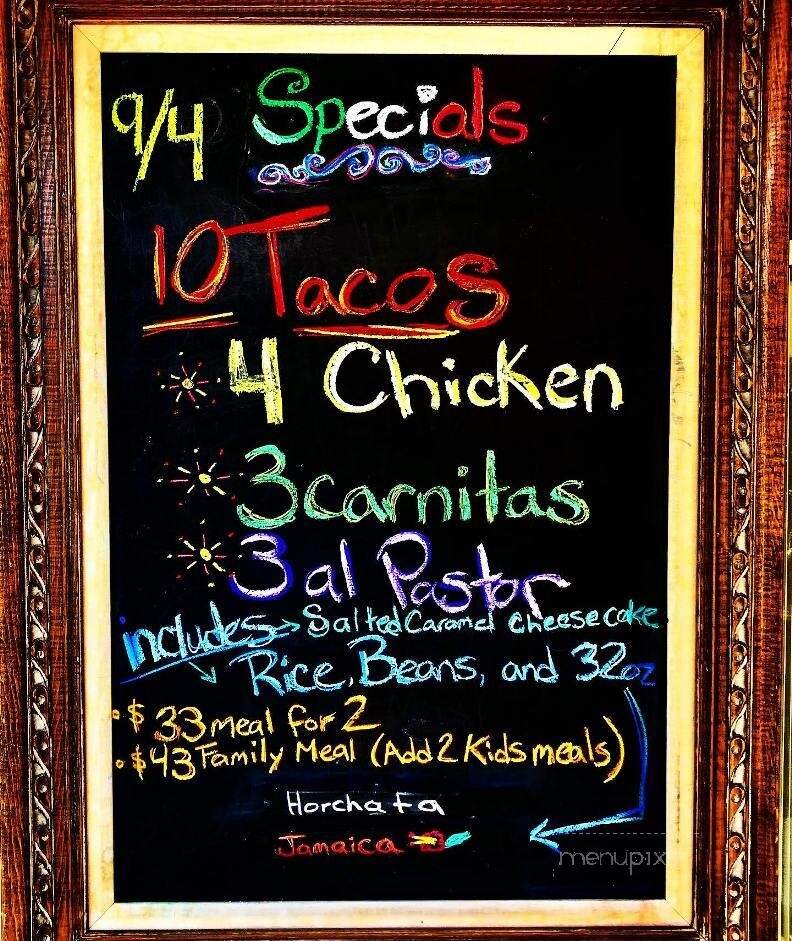 9/4 Specials
10 Tacos
4 Chicken
3 carnitas
3 al Pastor
includes → Salted Caramel cheesecake
Rice, Beans, and 32oz
• $33 meal for 2
• $43 Family Meal (Add 2 Kids meals)
Horchata
Jamaica
menupix